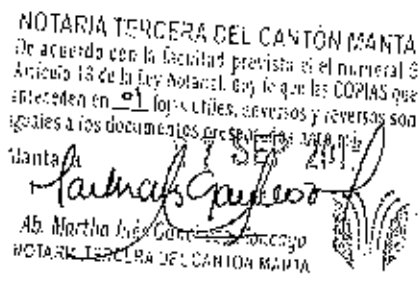 NOTARIA TERCERA DEL CANTÓN MANTA
De acuerdo con la facultad prevista en el numeral 5
Artículo 18 de la Ley Notarial, doy fe que las COPIAS que
anteceden en 01 fojas útiles, anversos y reversos son
iguales a los documentos presentados ante mí
Manta, SEP 201
Ab. Martha Inés
NOTARIA TERCERA DEL CANTON MANTA